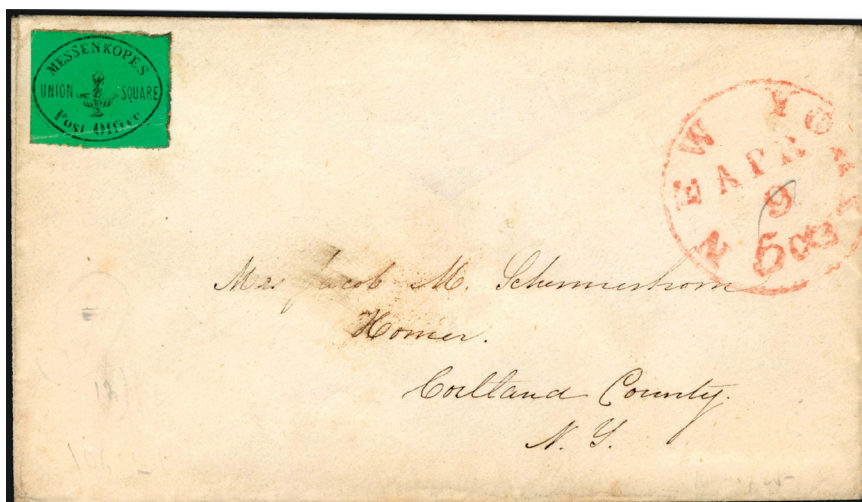 MESSENKOPES
UNION SQUARE
Post Office
NEW YORK
APR
9
5 cts
Mrs Jacob M. Schermerhorn
Homer.
Cortland County.
N. Y.